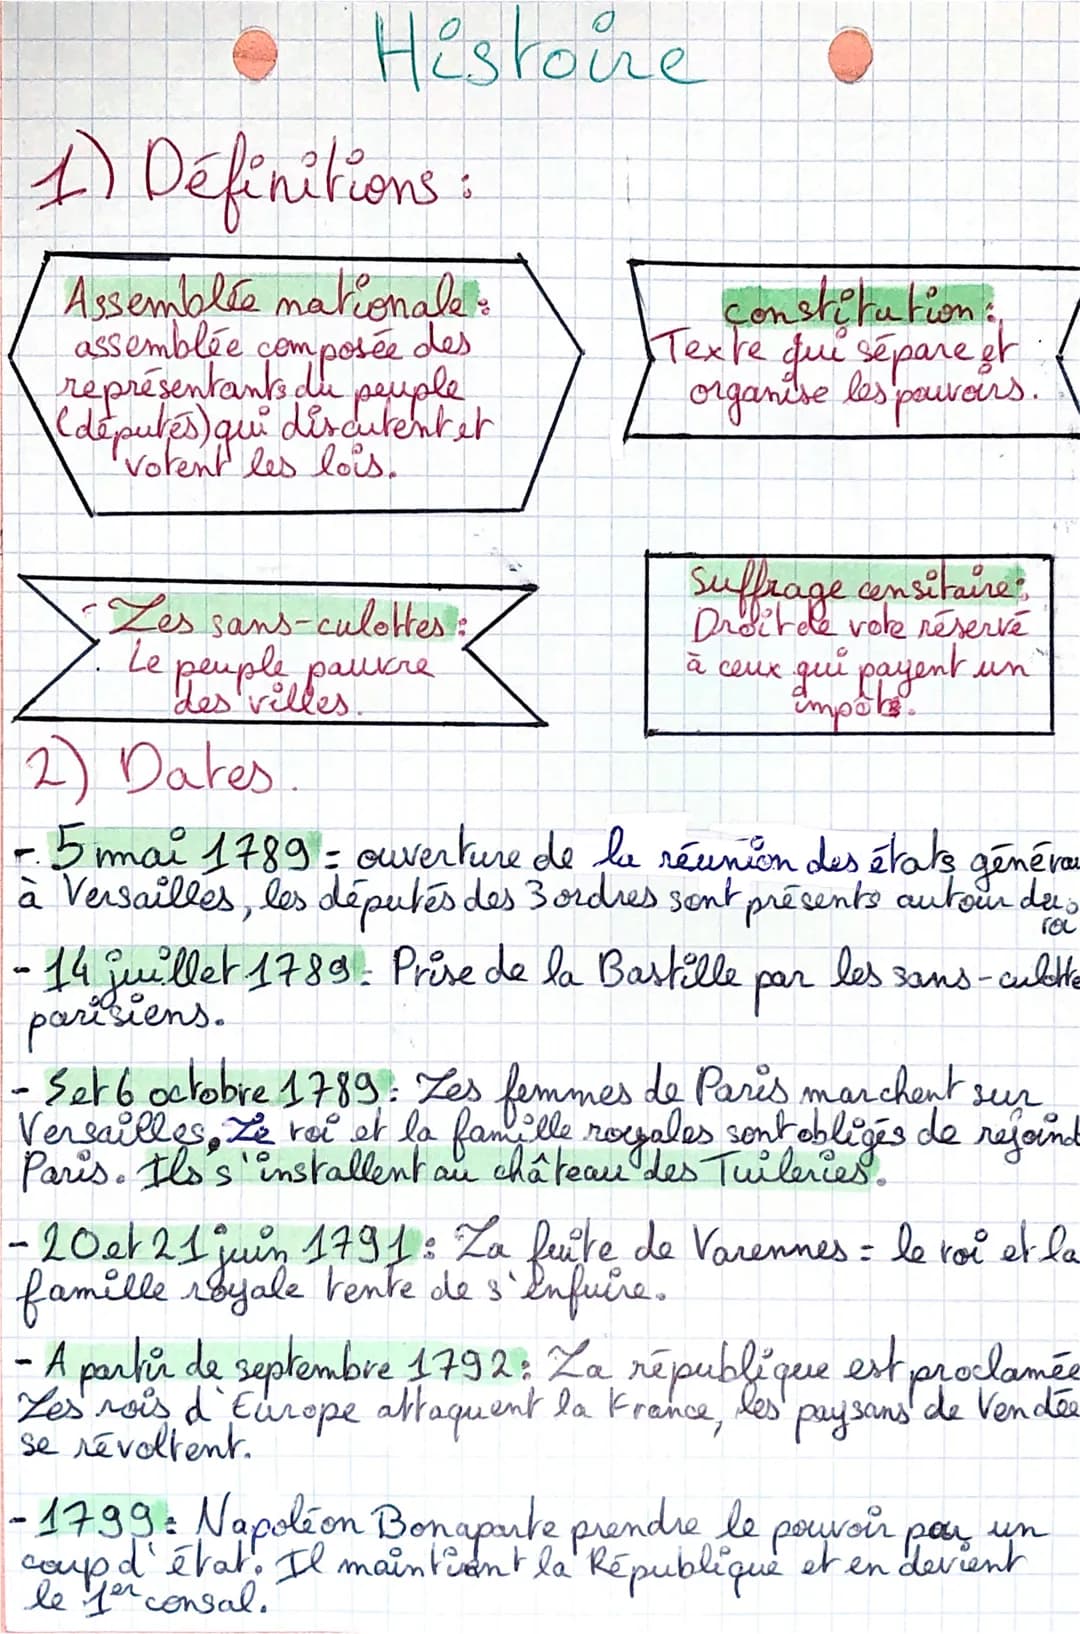 Histoire
1) Définitions :
Assemblée nationale :
assemblée composée des
représentants du peuple
(députés) qui discutent et
votent les lois.
constitution :
Texte qui sépare et
organise les pouvoirs.
- Les sans-culottes :
Le peuple pauvre
des villes.
Suffrage censitaire :
Droit de vote réservé
à ceux qui payent un
impôts.
2) Dates.
- 5 mai 1789 = ouverture de la réunion des états générau
à Versailles, les députés des 3 ordres sont présents autour du
roi
- 14 juillet 1789 : Prise de la Bastille par les sans-culotte
parisiens.
- 5 et 6 octobre 1789 : Les femmes de Paris marchent sur
Versailles. Le roi et la famille royales sont obligés de rejoind
Paris. Ils s'installent au château des Tuileries.
- 20 et 21 juin 1791 : La fuite de Varennes = le roi et la
famille royale tente de s'enfuire.
- A partir de septembre 1792 : La république est proclamée
Les rois d'Europe attaquent la France, les paysans de Vendée
se révoltent.
- 1799 : Napoléon Bonaparte prendre le pouvoir par un
coup d'état. Il maintient la République et en devient
le 1er consal.